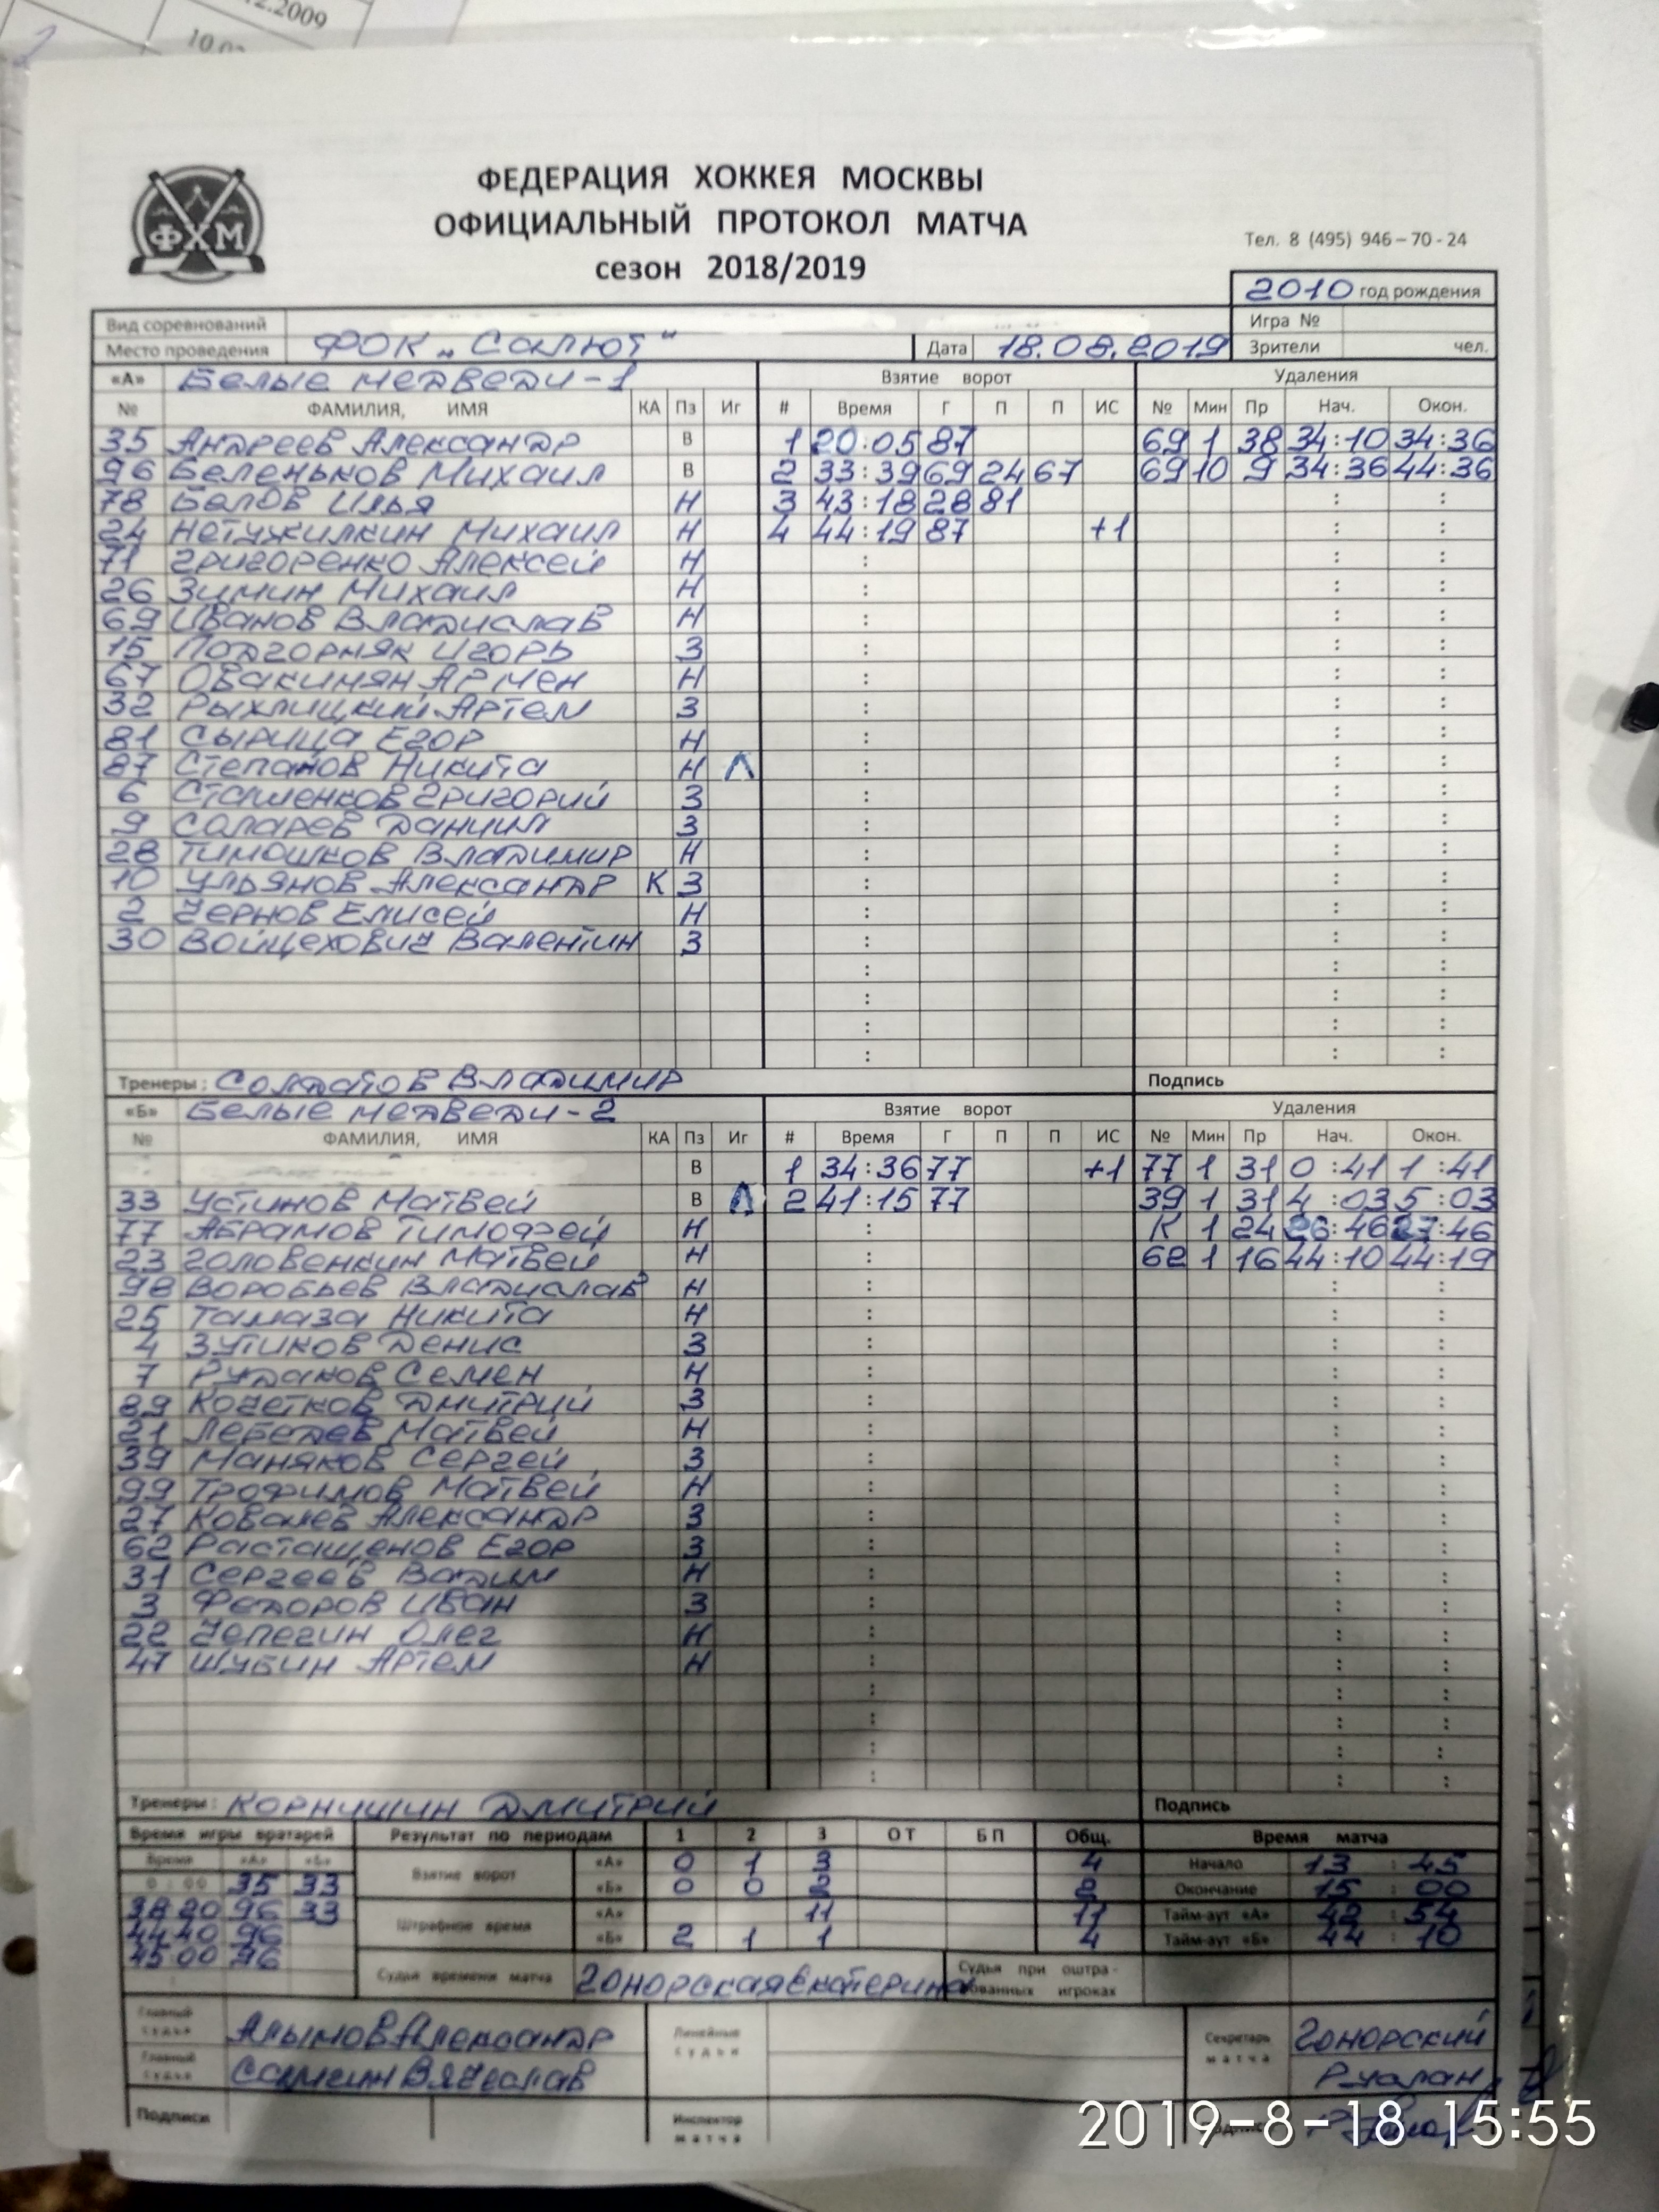 2.2009
ФХМ
ФЕДЕРАЦИЯ ХОККЕЯ МОСКВЫ
ОФИЦИАЛЬНЫЙ ПРОТОКОЛ МАТЧА
сезон 2018/2019
Тел. 8 (495) 946-70-24
2010 год рождения
Вид соревнований Игра №
Место проведения ФОК „Салют" Дата 18.08.2019 Зрители чел.
«А» Белые медведи-1 Взятие ворот Удаления
№ ФАМИЛИЯ, ИМЯ КА Пз Иг # Время Г П П ИС № Мин Пр Нач. Окон.
35 Андреев Александр В 1 20:05 87 69 1 38 34:10 34:36
96 Беленьков Михаил В 2 33:39 69 24 67 69 10 9 34:36 44:36
78 Белов Илья Н 3 43:18 28 81 : :
24 Нетужилкин Михаил Н 4 44:19 87 +1 : :
71 Григоренко Алексей Н : : :
26 Зимин Михаил Н : : :
69 Иванов Владислав Н : : :
15 Подгорняк Игорь З : : :
67 Овакимян Армен Н : : :
32 Рыхлицкий Артем З : : :
81 Сырица Егор Н : : :
87 Степанов Никита Н Л : : :
6 Сташенков Григорий З : : :
9 Соларев Даниил З : : :
28 Тимошков Владимир Н : : :
10 Ульянов Александр К З : : :
2 Чернов Елисей Н : : :
30 Войцехович Валентин З : : :
: : :
: : :
: : :
: : :
Тренеры: Солдатов Владимир Подпись
«Б» Белые медведи-2 Взятие ворот Удаления
№ ФАМИЛИЯ, ИМЯ КА Пз Иг # Время Г П П ИС № Мин Пр Нач. Окон.
В 1 34:36 77 +1 77 1 31 0:41 1:41
33 Устинов Матвей В Л 2 41:15 77 39 1 31 4:03 5:03
77 Абрамов Тимофей Н : К 1 24 26:46 27:46
23 Головенкин Матвей Н : 62 1 16 44:10 44:19
98 Воробьев Владислав Н : : :
25 Тамаза Никита Н : : :
4 Зутиков Денис З : : :
7 Рудаков Семен Н : : :
89 Кочетков Дмитрий З : : :
21 Лебедев Матвей Н : : :
39 Маняков Сергей З : : :
99 Трофимов Матвей Н : : :
27 Ковалев Александр З : : :
62 Расташенов Егор З : : :
31 Сергеев Вадим Н : : :
3 Федоров Иван З : : :
22 Чепегин Олег Н : : :
47 Шубин Артем Н : : :
: : :
: : :
: : :
: : :
Тренеры: Корнишин Дмитрий Подпись
Время игры вратарей Результат по периодам 1 2 3 ОТ БП Общ. Время матча
Время «А» «Б» Взятие ворот «А» 0 1 3 4 Начало 13:45
0:00 35 33 «Б» 0 0 2 2 Окончание 15:00
38:20 96 33 Штрафное время «А» 11 11 Тайм-аут «А» 42:54
44:40 96 «Б» 2 1 1 4 Тайм-аут «Б» 44:10
45:00 96 Судья времени матча Гонорская Екатерина Судья при оштрафованных игроках
Главный судья Алымов Александр Линейные судьи Секретарь матча Гонорский
Главный судья Вячеслав Руслан
Подписи Инспектор матча
2019-8-18 15:55